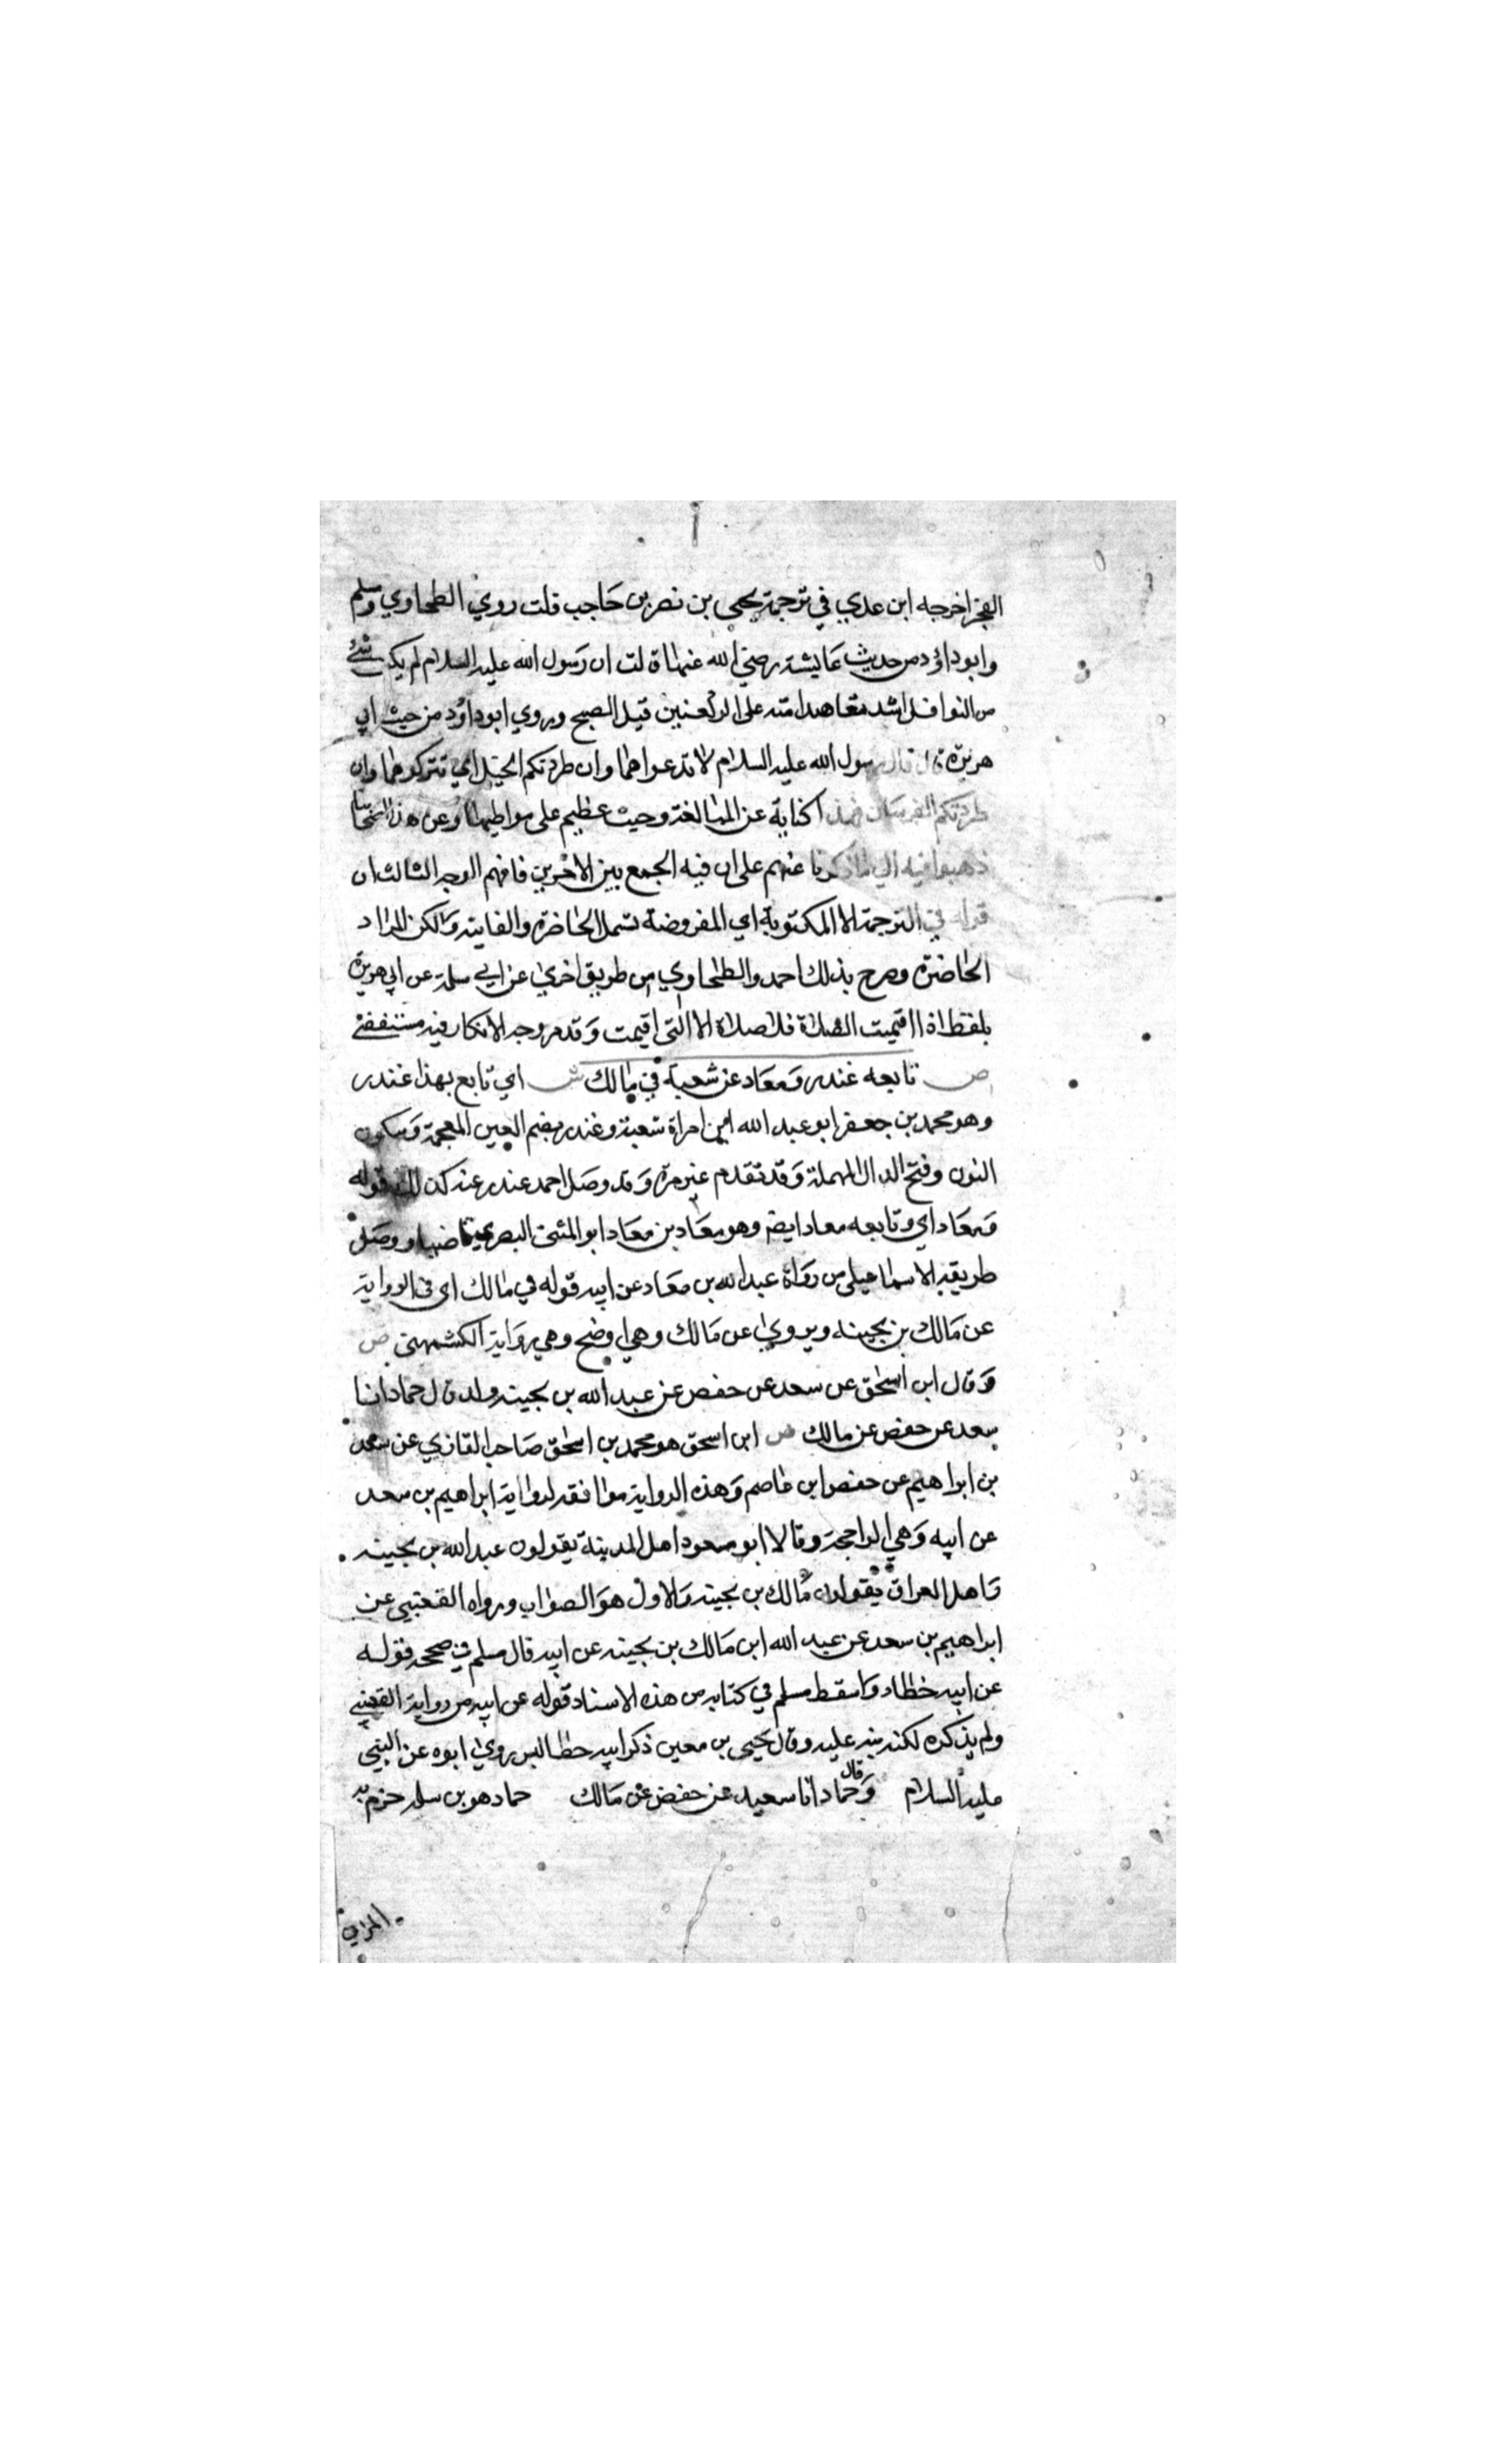 الفجر اخرجه ابن عدي في ترجمة يحيى بن نصر بن حاجب قلت روي الطحاوي ومسلم
وابو داود من حديث عايشة رضي الله عنها قالت ان رسول الله عليه السلام لم يكن شئ
من النوافل اشد معاهدا منه على الركعتين قبل الصبح وروي ابو داود من حيث ابي
هريرة قال قال رسول الله عليه السلام لا تدعوا هما وان طردتكم الخيل اي تتركوهما وان
طردتكم الفرسان فهذا كناية عن المبالغة وحيث عظيم على مواظبتها وعن هذا اصحابنا
ذهبوا فيه الي ما ذكرنا عنهم على ان فيه الجمع بين الامرين فافهم الوجه الثالث ان
قوله في الترجمة الا المكتوبة اي المفروضة تشمل الحاضرة والفايتة ولكن المراد
الحاضرة وصرح بذلك احمد والطحاوي من طريق اخري عن ابي سلمة عن ابي هريرة
بلفظ اذا اقيمت الصلاة فلا صلاة الا التي اقيمت وقد مر وجه الانكار فيه مستقصى
ص تابعه غندر ومعاد عن شعبة في مالك ش اي تابع بهذا غندر
وهو محمد بن جعفر ابو عبد الله ابن امراة شعبة وغندر بضم الغين المعجمة وسكون
النون وفتح الدال المهملة وقد تقدم غير مرة وقد وصل احمد غندر عنه كذلك قوله
ومعاد اي وتابعه معاد ايضا وهو معاد بن معاد ابو المثنى البصري قاضيها ووصل
طريقه الاسماعيلى من رواة عبد الله بن معاد عن ابيه قوله في مالك اى فى الرواية
عن مالك بن بحينه ويروي عن مالك وهي اوضح وهي رواية الكشمهنى ص
وقال ابن اسحق عن سعد عن حفص عن عبد الله بن بحينه وقال حماد انا
سعد عن حفص عن مالك ش ابن اسحق هو محمد بن اسحق صاحب المغازي عن سعد
بن ابراهيم عن حفص ابن عاصم وهذه الرواية موافقه لرواية ابراهيم بن سعد
عن ابيه وهي الراجحة وقالا ابو مسعود اهل المدينة يقولون عبد الله بن بحينه
واهل العراق يقولون مالك بن بحينه والاول هو الصواب ورواه القعنبي عن
ابراهيم بن سعد عن عبد الله ابن مالك بن بحينه عن ابيه قال مسلم في صحيحه قوله
عن ابيه خطاء واسقط مسلم في كتابه من هذه الاسناد قوله عن ابيه من رواية القعنبي
ولم يذكره لكنه نبه عليه وقال يحيى بن معين ذكر ابيه خطا ليس روي ابوه عن النبي
عليه السلام وقال حماد انا سعيد عن حفص عن مالك حماد هو بن سلمه جزم به
المزي